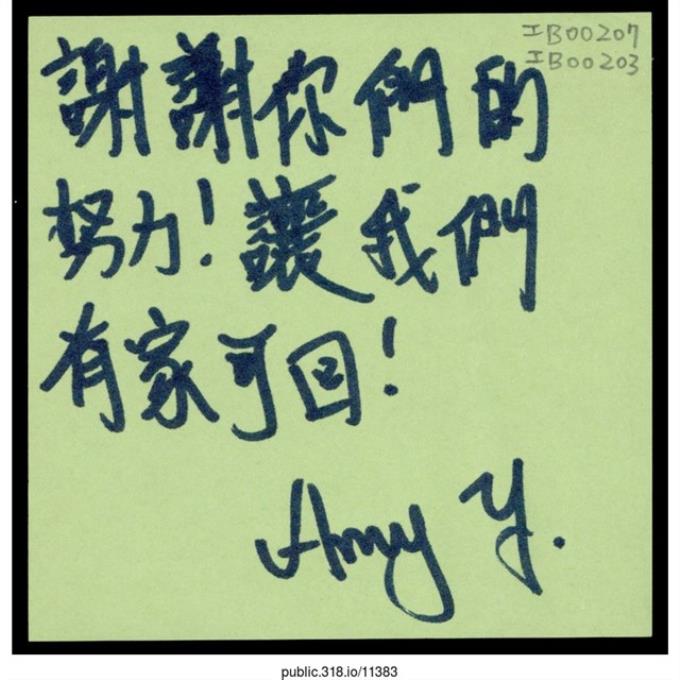 IB00207
IB00203
謝謝你們的
努力!讓我們
有家可回!
Amy Y.
public.318.io/11383